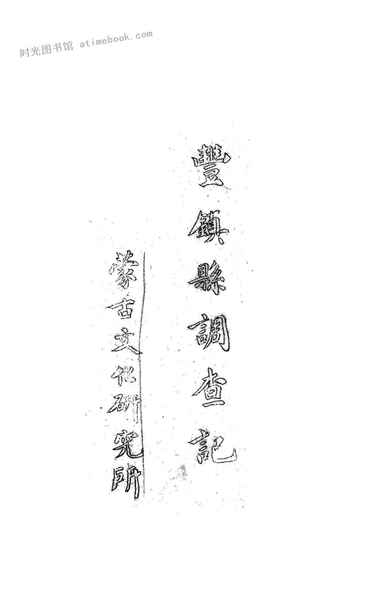 时光图书馆 atimebook.com
豐鎮縣調查記
蒙古文化研究所